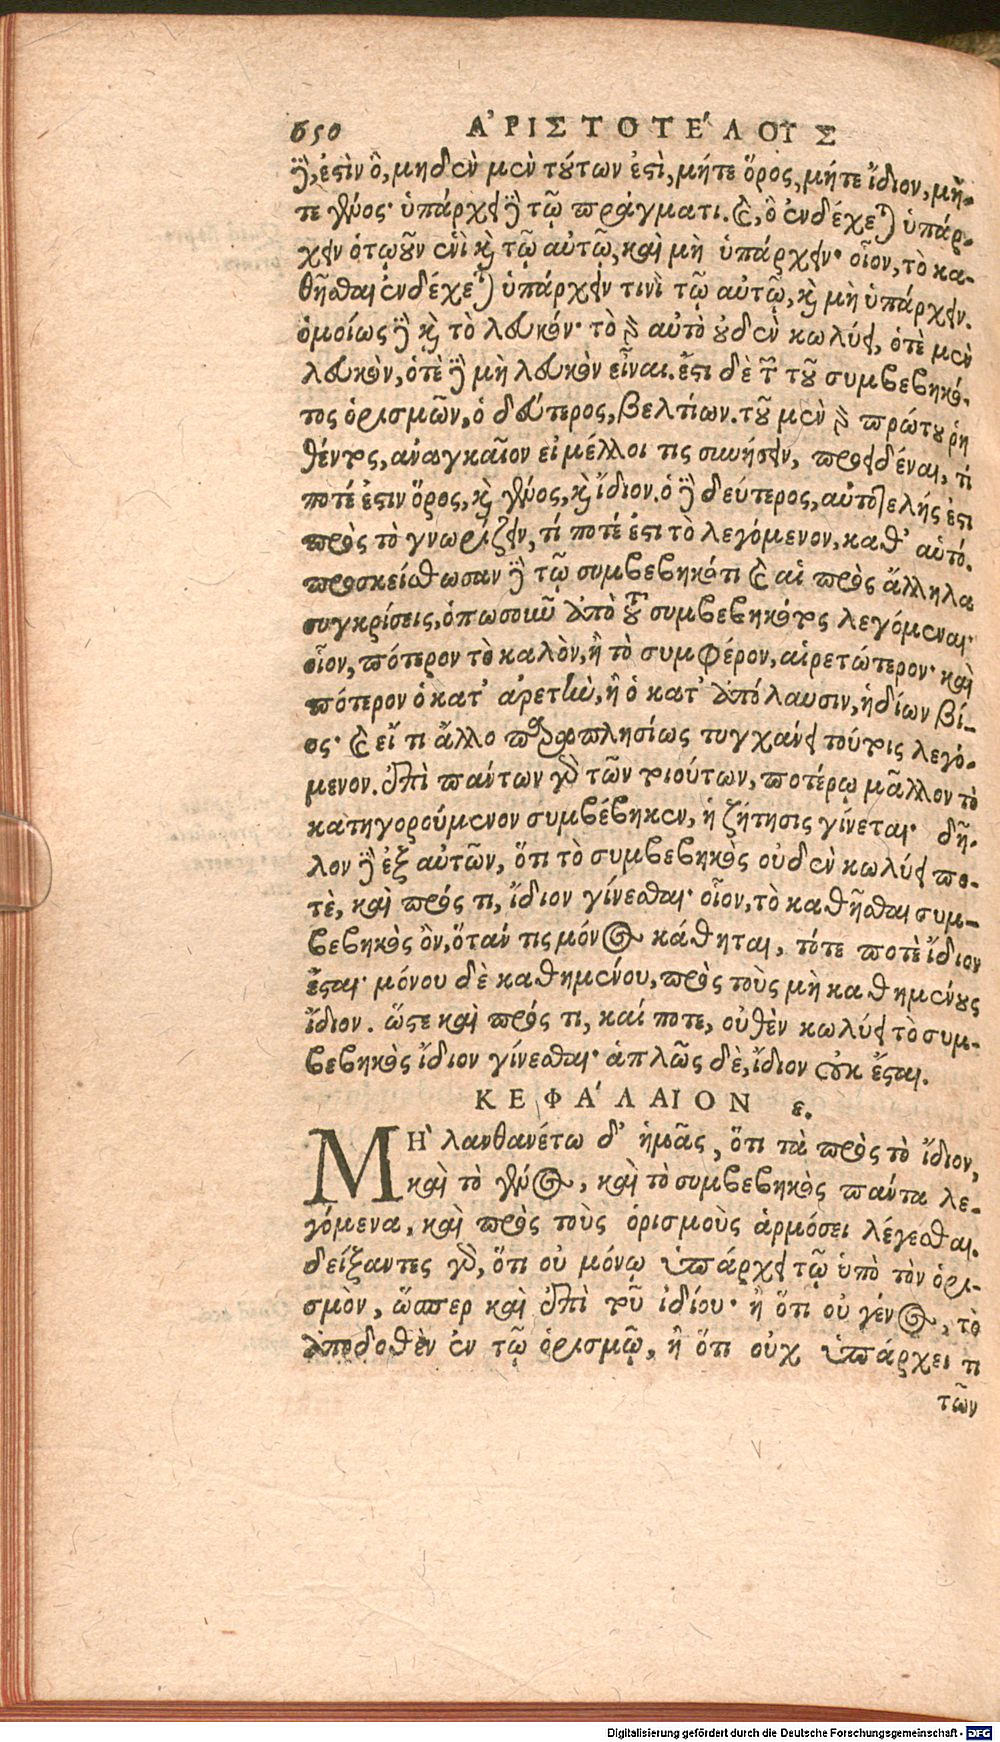 650 ἈΡΙΣΤΟΤΕ´ΛΟΥΣ
δὲ, ἐστὶν ὃ, μηδὲν μὲν τούτων ἐστὶ, μήτε ὅρος, μήτε ἴδιον, μή-
τε γένος· ὑπάρχει δὲ τῷ πράγματι. καὶ, ὃ ἐνδέχεται ὑπάρ-
χειν ὁτῳοῦν ἑνὶ καὶ τῷ αὐτῷ, καὶ μὴ ὑπάρχειν· οἷον, τὸ κα-
θῆσθαι ἐνδέχεται ὑπάρχειν τινὶ τῷ αὐτῷ, καὶ μὴ ὑπάρχειν.
ὁμοίως δὲ καὶ τὸ λευκόν· τὸ γὰρ αὐτὸ οὐδὲν κωλύει, ὁτὲ μὲν
λευκὸν, ὁτὲ δὲ μὴ λευκὸν εἶναι. ἔστι δὲ τῶν τοῦ συμβεβηκό-
τος ὁρισμῶν, ὁ δεύτερος, βελτίων. τοῦ μὲν γὰρ πρώτου ῥη
θέντος, ἀναγκαῖον εἰ μέλλοι τις συνήσειν, προειδέναι, τί
ποτέ ἐστιν ὅρος, καὶ γένος, καὶ ἴδιον. ὁ δὲ δεύτερος, αὐτοτελής ἐστι
πρὸς τὸ γνωρίζειν, τί ποτέ ἐστι τὸ λεγόμενον, καθ’ αὑτό.
προσκείσθωσαν δὲ τῷ συμβεβηκότι καὶ αἱ πρὸς ἄλληλα
συγκρίσεις, ὁπωσοῦν ἀπὸ τοῦ συμβεβηκότος λεγόμεναι·
οἷον, πότερον τὸ καλὸν, ἢ τὸ συμφέρον, αἱρετώτερον· καὶ
πότερον ὁ κατ’ ἀρετὴν, ἢ ὁ κατ’ ἀπόλαυσιν, ἡδίων βί-
ος· καὶ εἴ τι ἄλλο παραπλησίως τυγχάνει τούτοις λεγό-
μενον. ἐπὶ πάντων γὰρ τῶν τοιούτων, ποτέρῳ μᾶλλον τὸ
κατηγορούμενον συμβέβηκεν, ἡ ζήτησις γίνεται· δῆ-
λον δὲ ἐξ αὐτῶν, ὅτι τὸ συμβεβηκὸς οὐδὲν κωλύει πο-
τὲ, καὶ πρός τι, ἴδιον γίνεσθαι· οἷον, τὸ καθῆσθαι συμ-
βεβηκὸς ὂν, ὅταν τις μόνος κάθηται, τότε ποτὲ ἴδιον
ἔσται· μόνου δὲ καθημένου, πρὸς τοὺς μὴ καθημένους
ἴδιον. ὥστε καὶ πρός τι, καί ποτε, οὐθὲν κωλύει τὸ συμ-
βεβηκὸς ἴδιον γίνεσθαι· ἁπλῶς δὲ, ἴδιον οὐκ ἔσται.
ΚΕΦΑ´ΛΑΙΟΝ ε.
ΜῊ λανθανέτω δ’ ἡμᾶς, ὅτι τὰ πρὸς τὸ ἴδιον,
καὶ τὸ γένος, καὶ τὸ συμβεβηκὸς πάντα λε-
γόμενα, καὶ πρὸς τοὺς ὁρισμοὺς ἁρμόσει λέγεσθαι.
δείξαντες γὰρ, ὅτι οὐ μόνῳ ὑπάρχει τῷ ὑπὸ τὸν ὁρι-
σμὸν, ὥσπερ καὶ ἐπὶ τοῦ ἰδίου· ἢ ὅτι οὐ γένος, τὸ
ἀποδοθὲν ἐν τῷ ὁρισμῷ, ἢ ὅτι οὐχ ὑπάρχει τι
τῶν
Digitalisierung gefördert durch die Deutsche Forschungsgemeinschaft - DFG